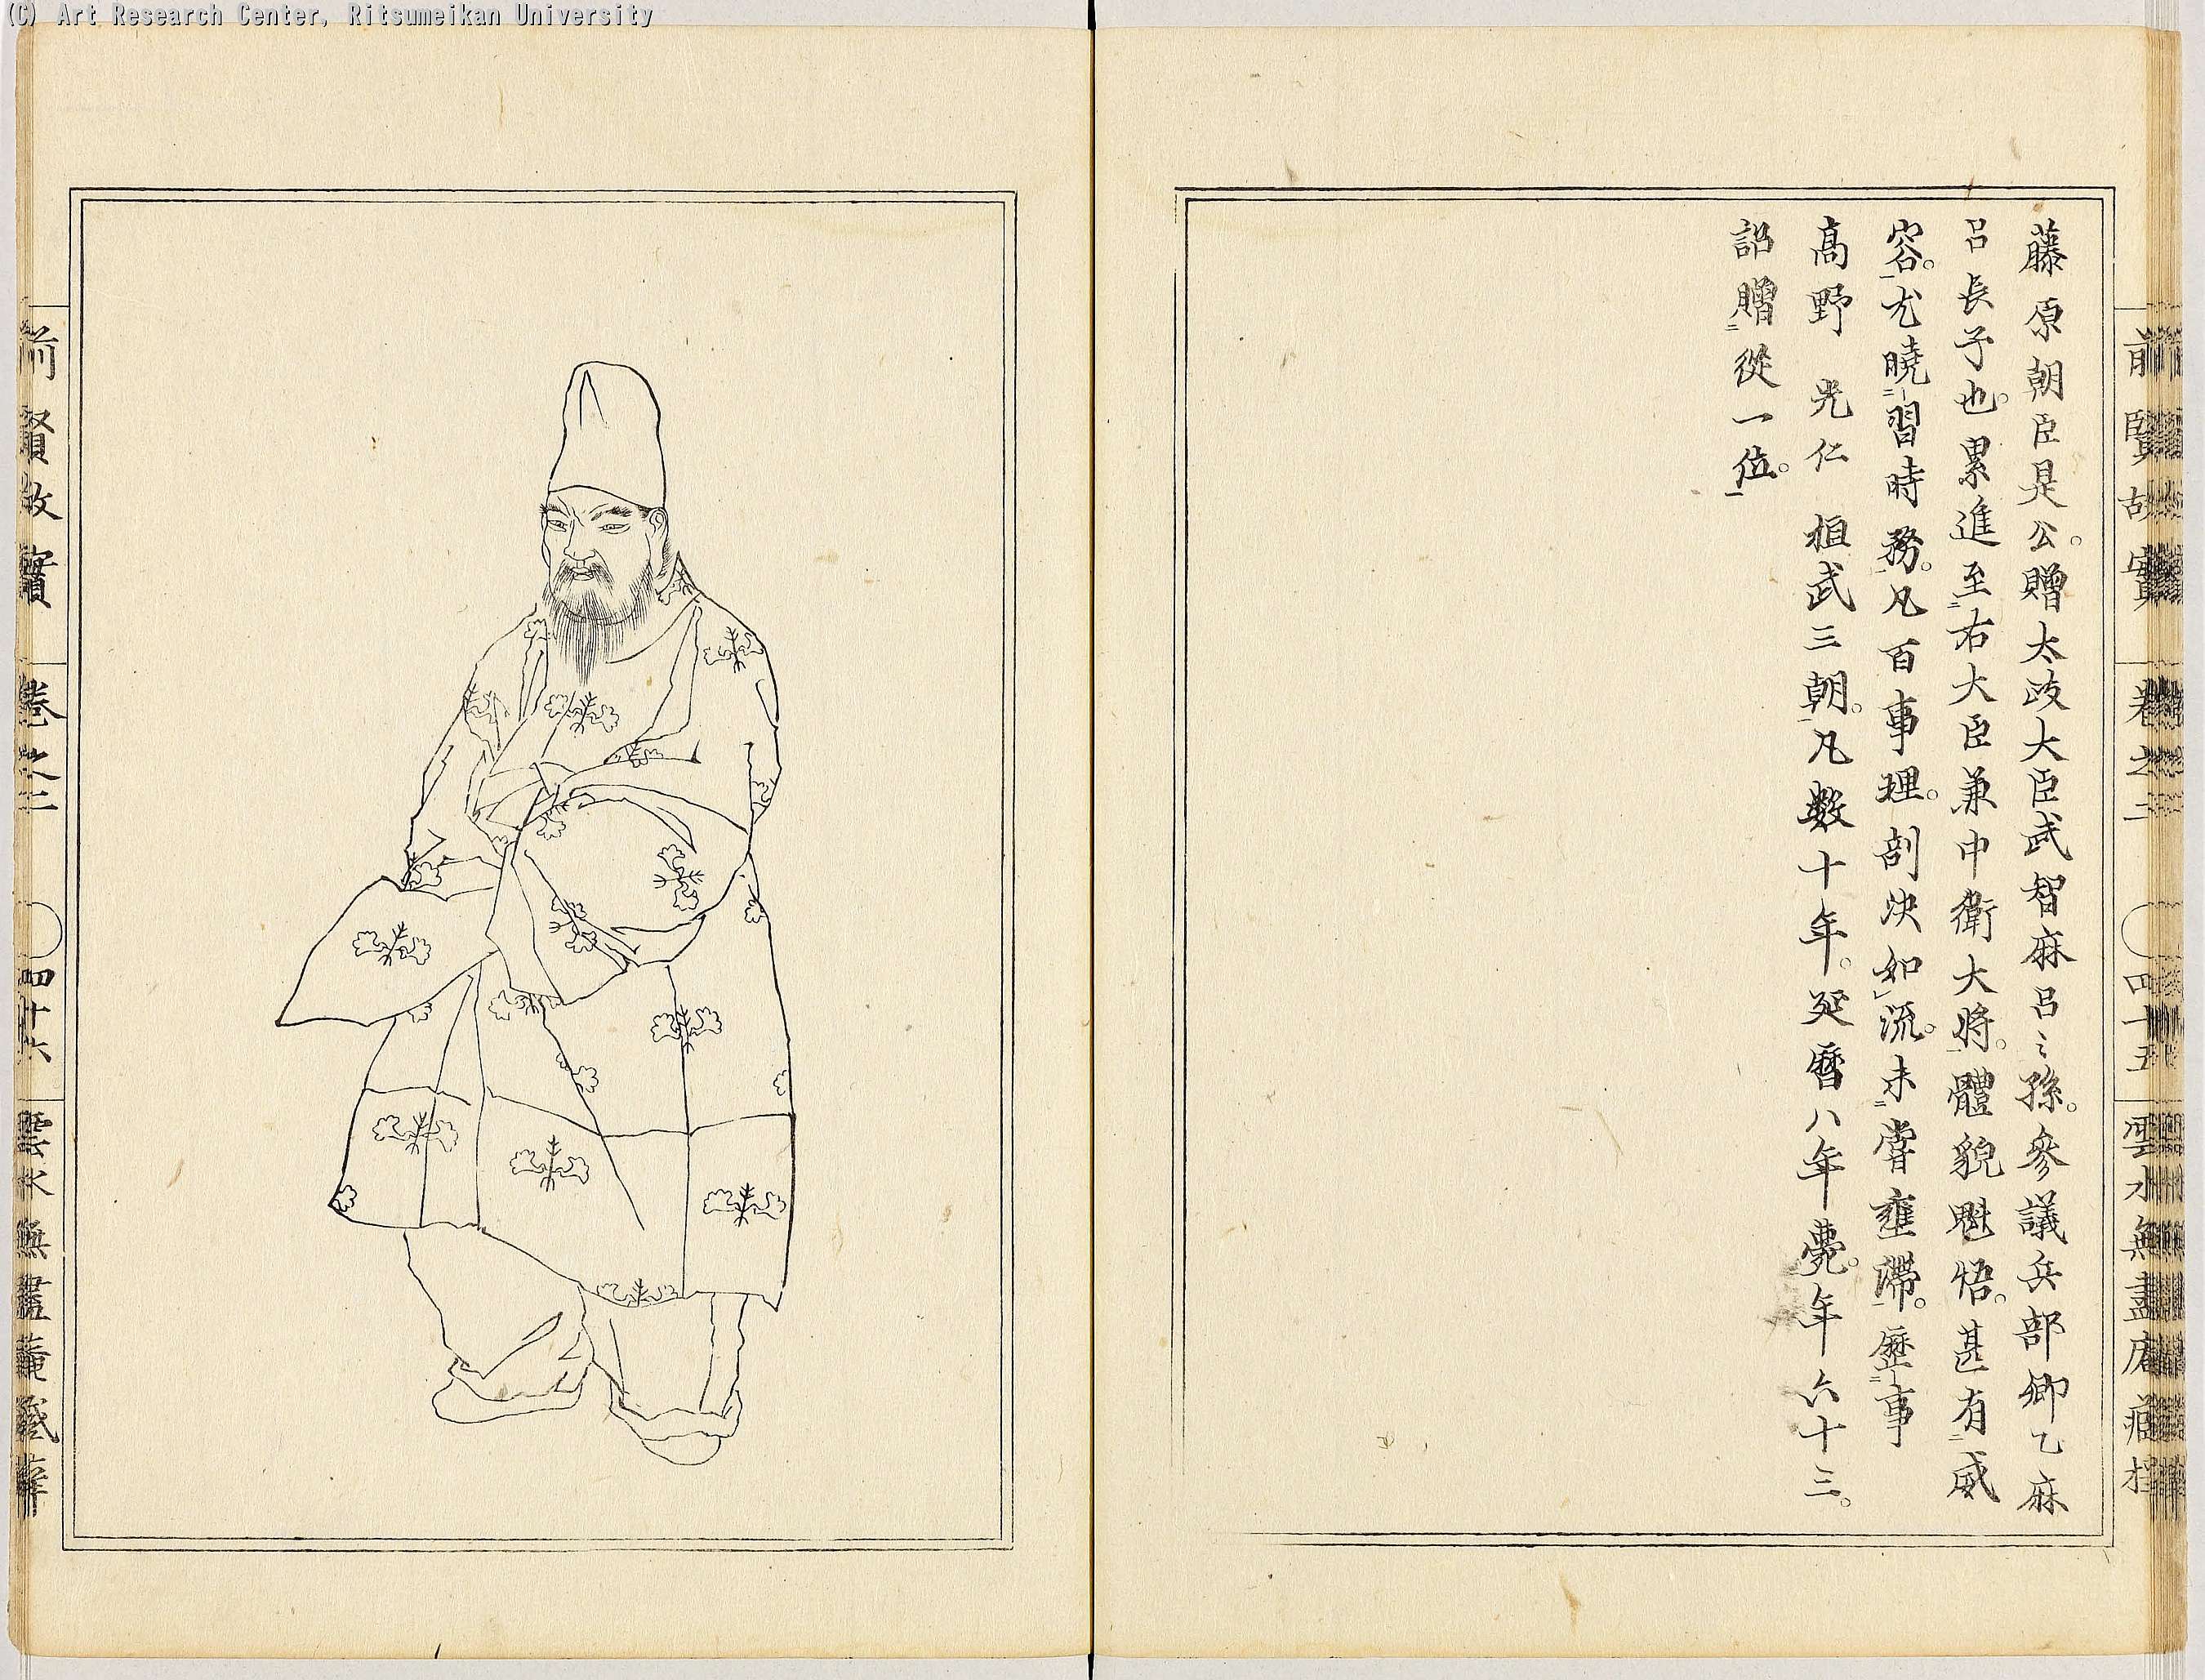 (C) Art Research Center, Ritsumeikan University
前賢故實 卷之二 四十五 雲水無盡庵藏
藤原朝臣是公。贈太政大臣武智麻呂〻孫。參議兵部卿乙麻
呂長子也。累進至右大臣兼中衛大將。體貌魁悟。甚有威
容。尤曉習時務。凡百事理。剖決如流。未嘗壅滯。歷事
高野 光仁 桓武三朝。凡數十年。延曆八年薨。年六十三。
詔贈從一位。
前賢故實 卷之二 四十六 雲水無盡菴藏